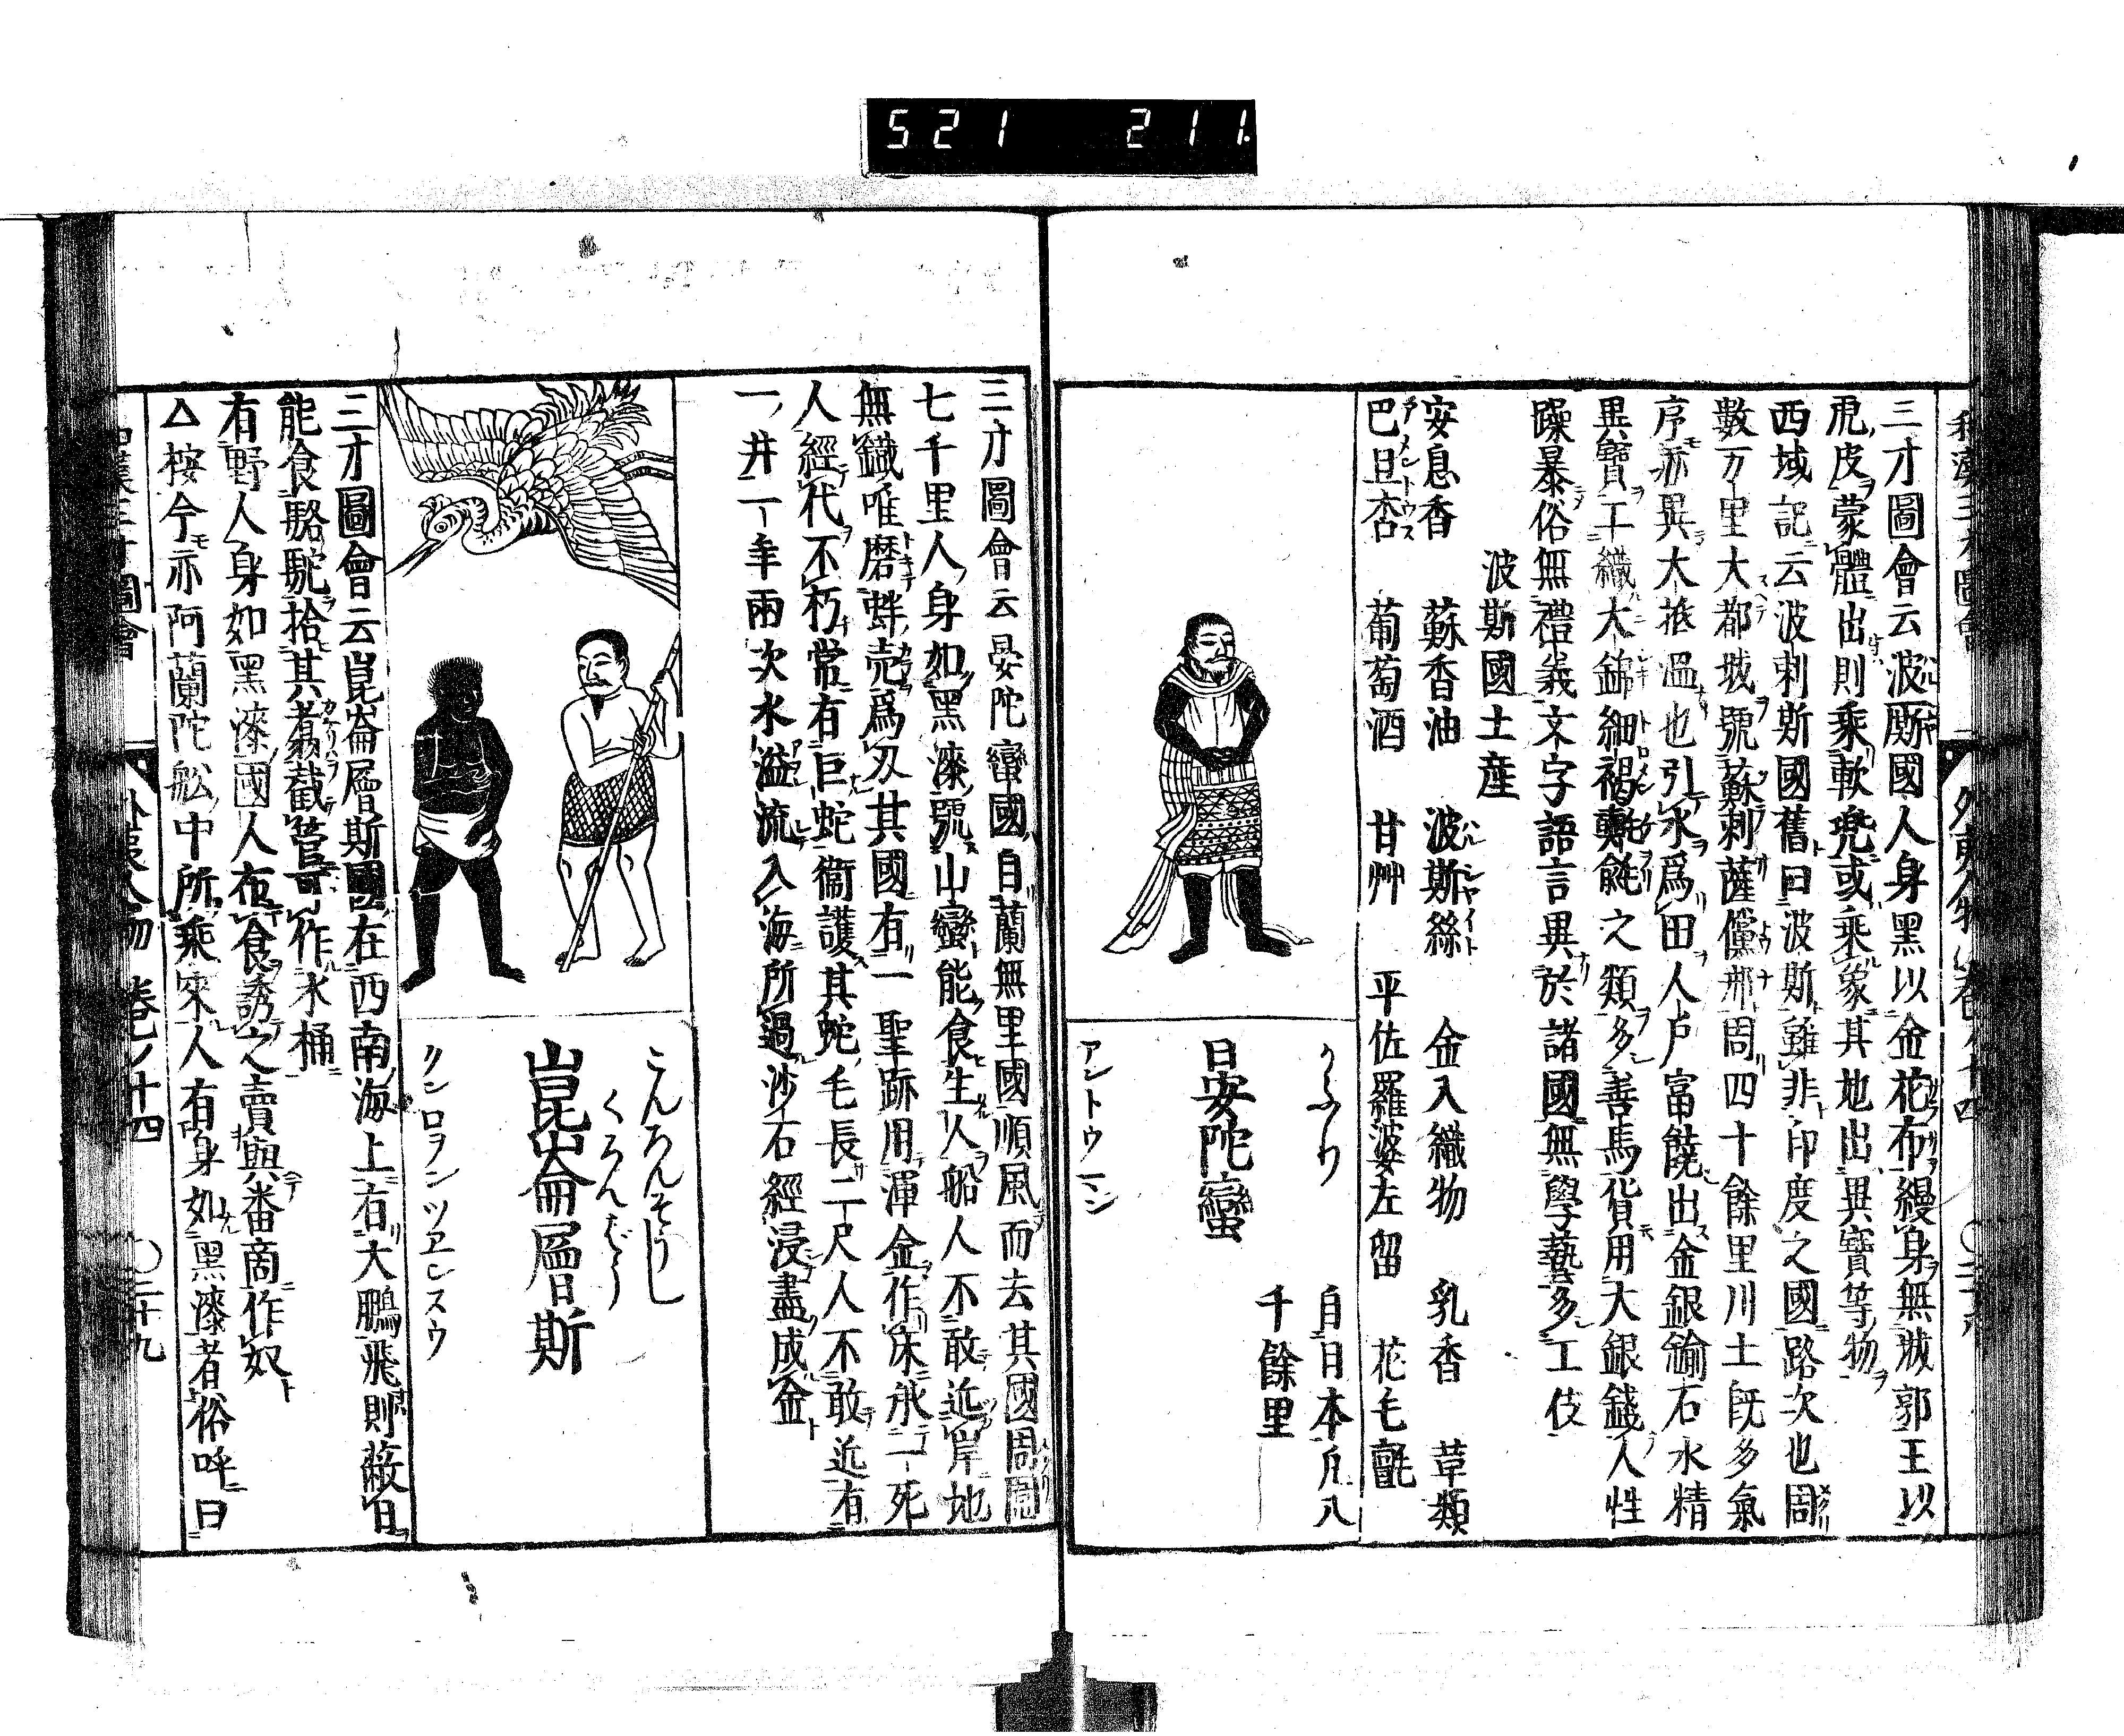 521 211.
三才圖會云波斯國人身黑以金花布縵身無城郭王以
虎皮蒙體出則乘軟兜或乘象其地出異寶等物
西域記云波剌斯國舊曰波斯雖非印度之國路次也周
數万里大都城號蘇剌薩儻那周四十餘里川土既多氣
序亦異大抵温也引水爲田人戸富饒出金銀鍮石水精
異寶工織大錦細褐氍毹之類多善馬貨用大銀錢人性
躁暴俗無禮義文字語言異於諸國無學藝多工伎
波斯國土産
安息香 蘇香油 波斯絲 金入織物 乳香 草類
巴旦杏 葡萄酒 甘艸 平佐羅婆左留 花毛氈
自日本凡八
千餘里
晏陀蠻
アントウマン
三才圖會云晏陀蠻國自蘭無里國順風而去其國周圍
七千里人身如黑漆號山蠻能食生人船人不敢近岸地
無鐵唯磨蚌売爲刃其國有一聖跡用渾金作床承一死
人經代不朽常有巨蛇衞護其蛇毛長二尺人不敢近有
一井一年兩次水溢流入海所過沙石經浸盡成金
こんろんそうし
くろんぼう
崑崙層斯
クンロヲンツヱンスウ
三才圖會云崑崙層斯國在西南海上有大鵬飛則蔽日
能食駱駝拾其翥截管可作水桶
有野人身如黑漆國人布食誘之賣與番商作奴
△按今亦阿蘭陀舩中所乘來人有身如黑漆者俗呼曰